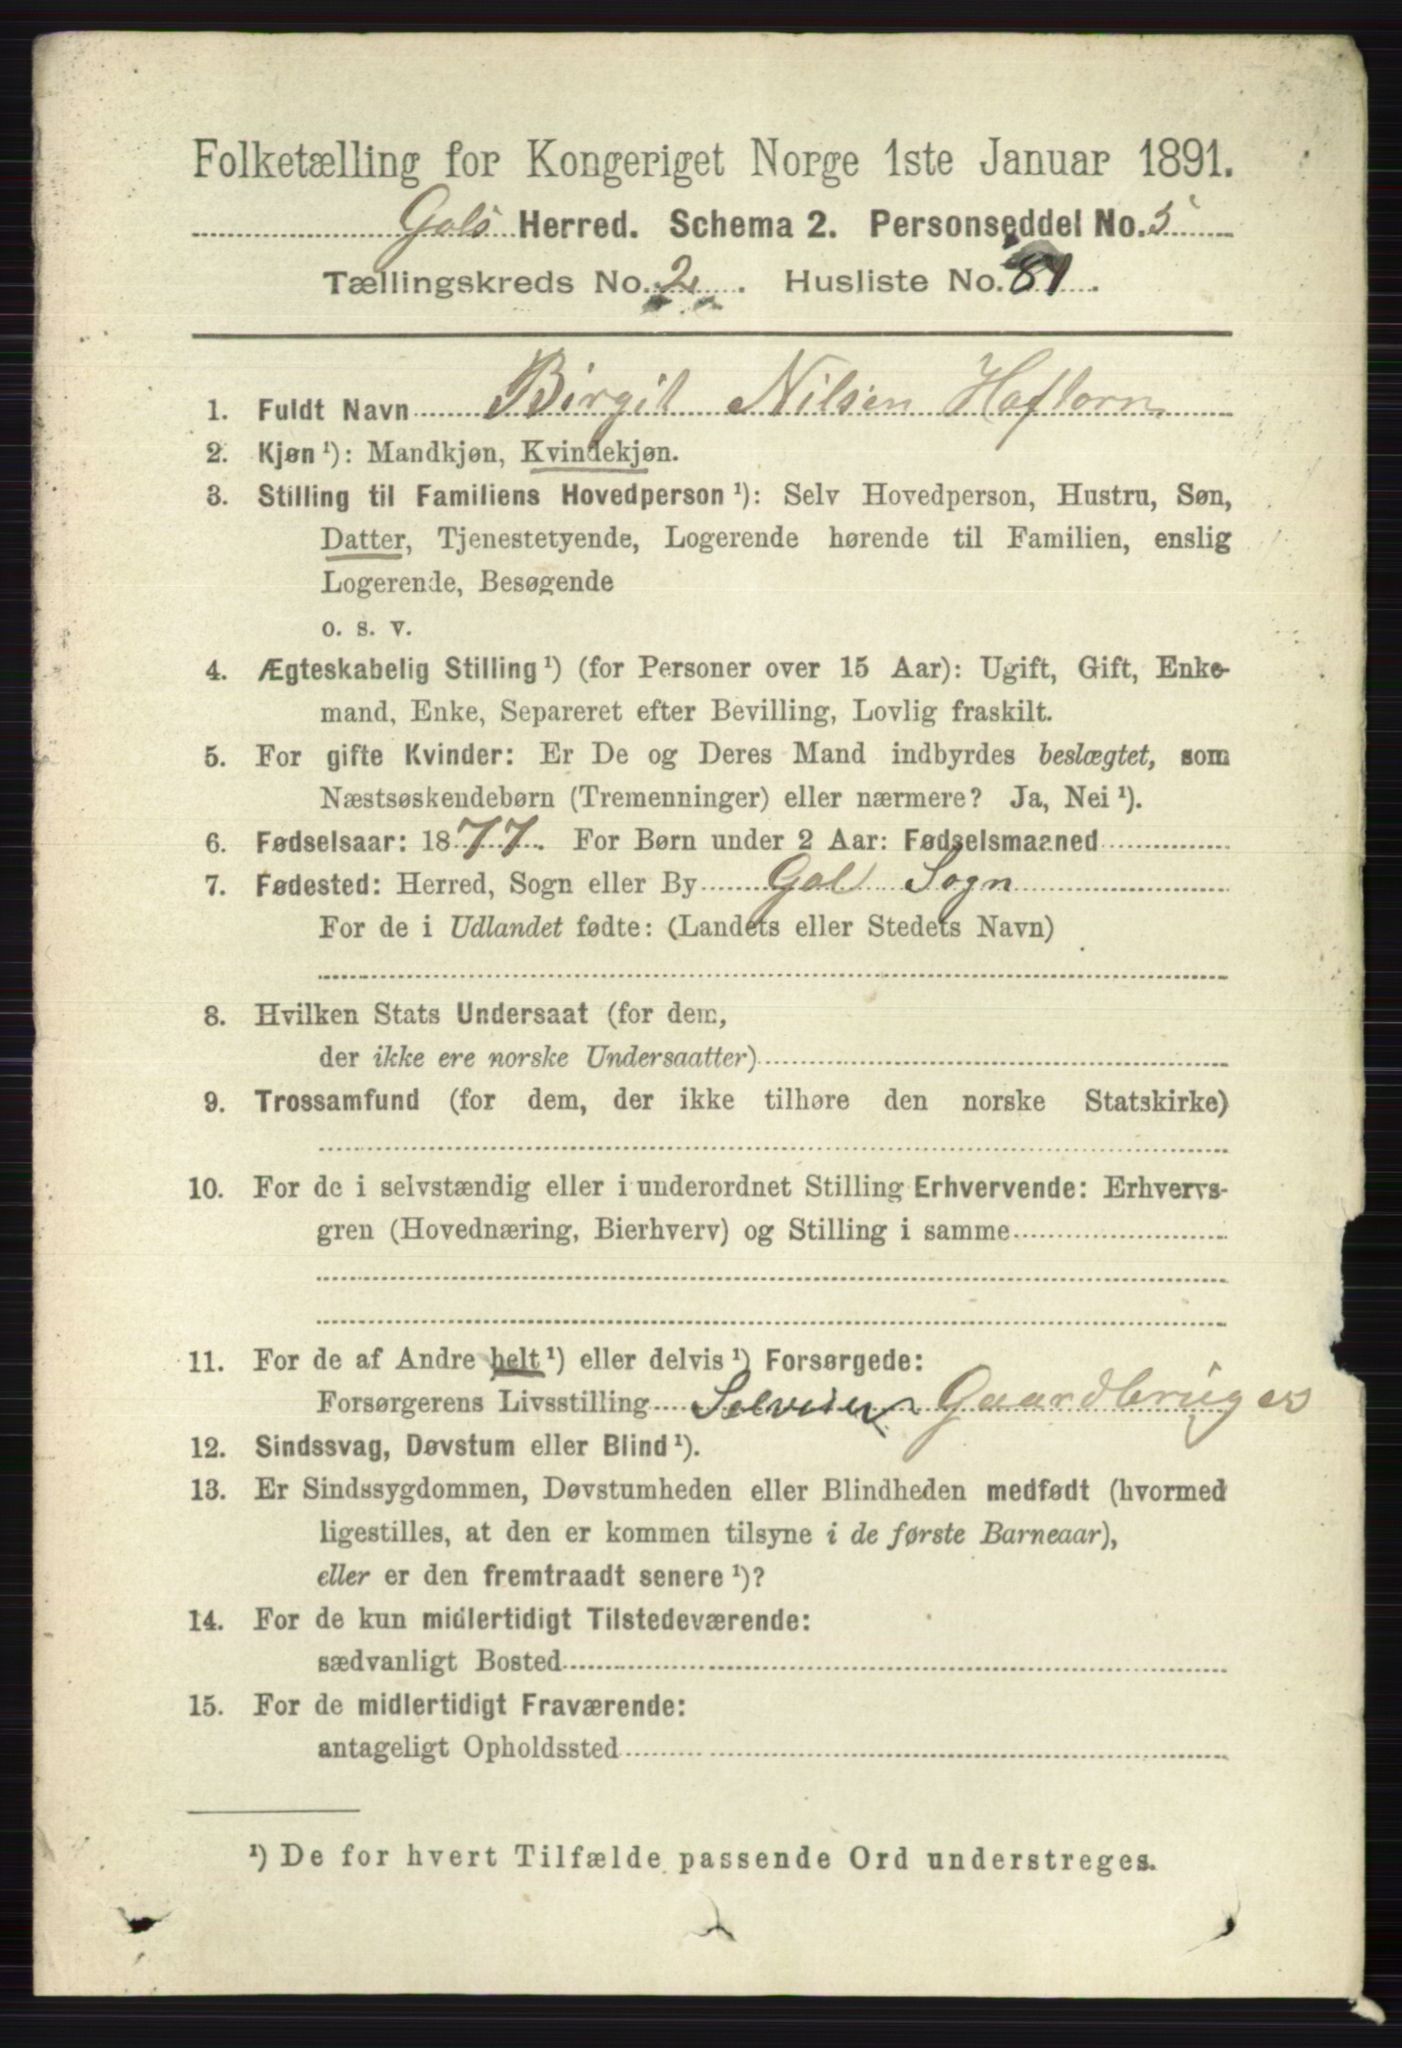 Folketælling for Kongeriget Norge 1ste Januar 1891.
Gols Herred. Schema 2. Personseddel No. 5
Tællingskreds No. 2. Husliste No. 81.
1. Fuldt Navn Birgit Nilsen Haftorn
2. Kjøn ¹): Mandkjøn, Kvindekjøn.
3. Stilling til Familiens Hovedperson ¹): Selv Hovedperson, Hustru, Søn,
Datter, Tjenestetyende, Logerende hørende til Familien, enslig
Logerende, Besøgende
o. s. v.
4. Ægteskabelig Stilling ¹) (for Personer over 15 Aar): Ugift, Gift, Enke-
mand, Enke, Separeret efter Bevilling, Lovlig fraskilt.
5. For gifte Kvinder: Er De og Deres Mand indbyrdes beslægtet, som
Næstsøskendebørn (Tremenninger) eller nærmere? Ja, Nei ¹).
6. Fødselsaar: 1877. For Børn under 2 Aar: Fødselsmaaned
7. Fødested: Herred, Sogn eller By Gol Sogn
For de i Udlandet fødte: (Landets eller Stedets Navn)
8. Hvilken Stats Undersaat (for dem,
der ikke ere norske Undersaatter)
9. Trossamfund (for dem, der ikke tilhøre den norske Statskirke)
10. For de i selvstændig eller i underordnet Stilling Erhvervende: Erhvervs-
gren (Hovednæring, Bierhverv) og Stilling i samme
11. For de af Andre helt ¹) eller delvis ¹) Forsørgede:
Forsørgerens Livsstilling Selveier Gaardbruger
12. Sindssvag, Døvstum eller Blind ¹).
13. Er Sindssygdommen, Døvstumheden eller Blindheden medfødt (hvormed
ligestilles, at den er kommen tilsyne i de første Barneaar),
eller er den fremtraadt senere ¹)?
14. For de kun midlertidigt Tilstedeværende:
sædvanligt Bosted
15. For de midlertidigt Fraværende:
antageligt Opholdssted
¹) De for hvert Tilfælde passende Ord understreges.